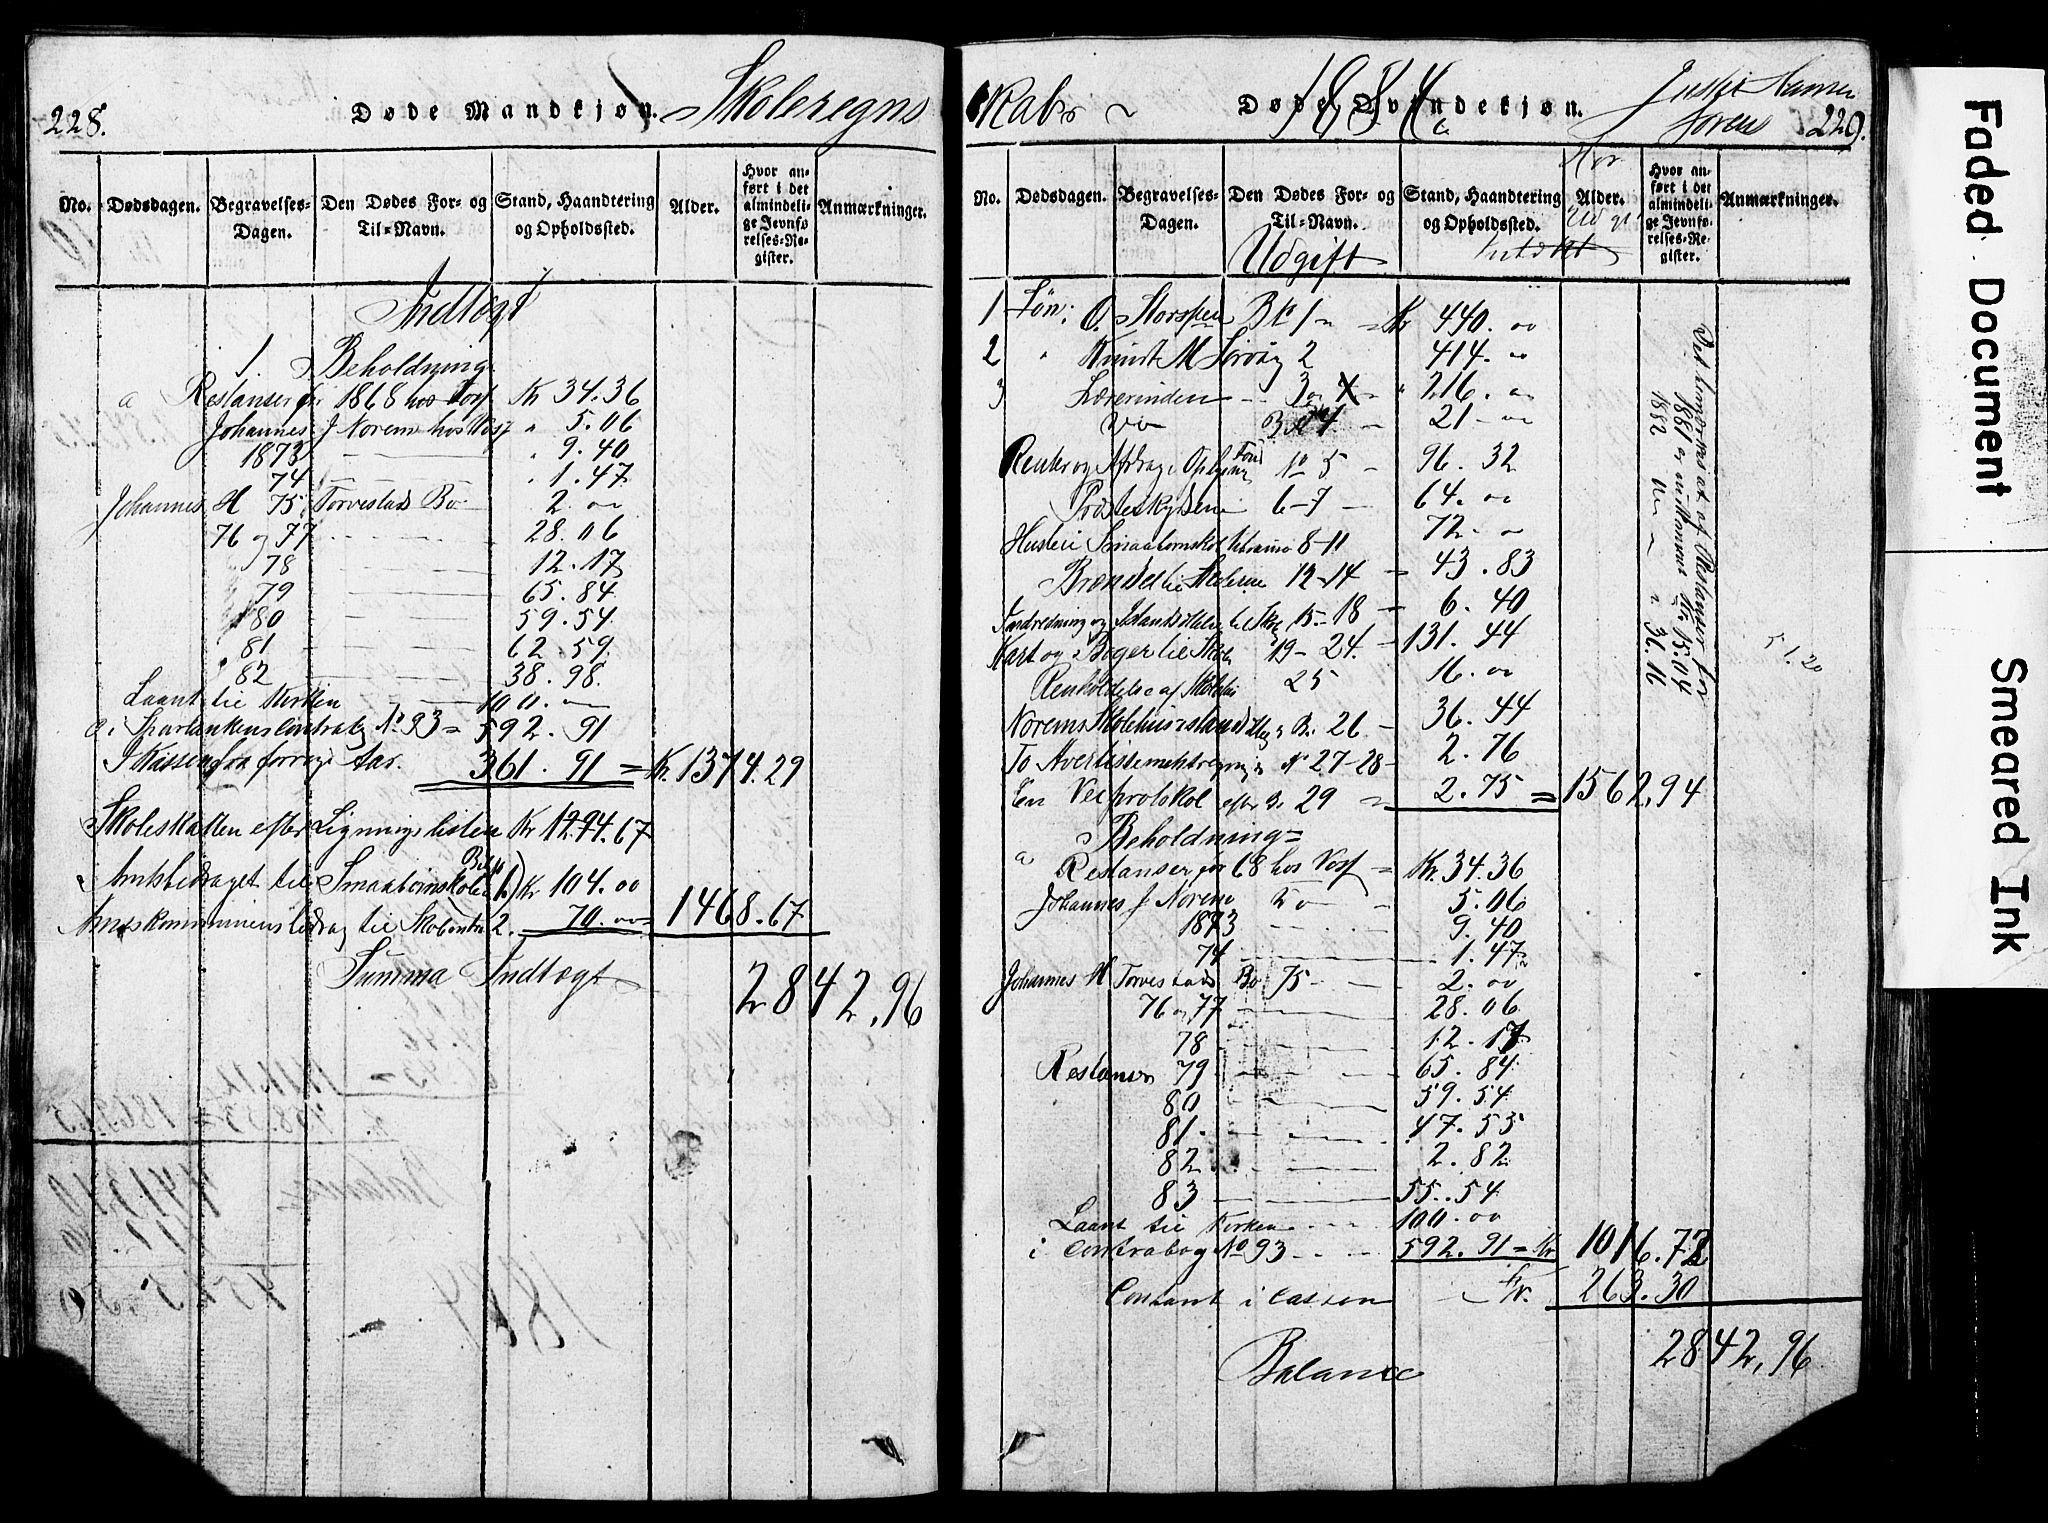 228.
Døde Mandkjøn.
Skoleregns
No.
Dødsdagen.
Begravelses-Dagen.
Den Dødes For- og Til-Navn.
Stand, Haandtering og Opholdssted.
Alder.
Hvor anført i det almindelige Jevnførelses-Register.
Anmærkninger.
Indtægt
1. Beholdning
a Restanser for 1868 hos Vosf Kr 34.36
Johannes J Norem hos Vosf " 5.06
1873 — — " 9.40
74 — — " 1.47
Johannes H 75 Torvestads Bo 2.00
76 og 77 — — 28.06
78 — — 12.17
79 — — 65.84
80 — — 59.54
81 — — 62.59
82 — — 38.98
Laant til Kirken — 100.—
a i Sparbankens Contrabog No 93 = 592.91
I Kassen fra forrige Aar. 361.91 = Kr. 1374.29
Skoleskatten efter Ligningslisten Kr 1294.67
Amtsbidraget til Smaabørnskolen Bil 1) Kr 104.00
Amtskommunens bidrag til 2. 70.00 = 1468.67
Summa Indtægt 2842,96
skabs ~
Døde Qvindekjøn.
1884
229.
No.
Dødsdagen.
Begravelses-Dagen.
Den Dødes For- og Til-Navn.
Stand, Haandtering og Opholdssted.
Alder.
Hvor anført i det almindelige Jevnførelses-Register.
Anmærkninger.
Udgift
1 Løn: O. Storsten B No 1 — Kr 440.00
2 " Knut M Sørvåg 2 414.00
3 Lærerinden — 3 " 216.00
21 — 00
Renter og Afdrag i Oplysning Fond No 5 — 96.32
Posteskydsen 6–7 — 64.00
Husleie Smaabornskol 8–11 72.—
Brændsel til 12–14 — 43.83
til Skol 15–18 — 6.40
Kart og Bøger til Skolen 19–24. — 131.44
Renholdelse af Skolehus 25 16.00
Norems Skolehus B. 26 — 36.44
To Avertissementsregninger No 27–28 — 2.76
En Veiprotokol efter B. 29 = 2.75 = 1562,94
Beholdning =
a Restanser for 68 hos Vosf = Kr. 34.36
Johannes J Norem — 5.06
1873 — — 9.40
74 — — 1.47
Johannes H Torvestads Bo 75 — — 2.00
76 og 77 — — 28.06
78 — — 12.17
Restanser 79 — — 65.84
80 — — 59.54
81 — — 47.55
82 — — 2.82
83 — — 55.54
Laant til Kirken — — 100.00
i Contrabog No 93 — — 592.91 = Kr 1016.72
Contant i Cassen — Kr. 263.30
Balance 2842,96
Det bemærkes at af Restanser for
1881 er Kr 15.04
1882 — " 36.16
51.20
Faded Document
Smeared Ink